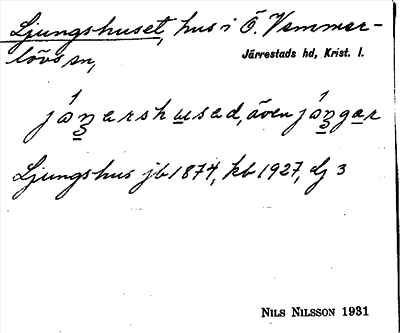 Ljungshuset, hus i Ö. Vemmer-
lövs sn,
Järrestads hd, Krist. l.
jáŋarshusad, även jáŋgar
Ljungshus jb 1874, kb 1927, dj 3
NILS NILSSON 1931